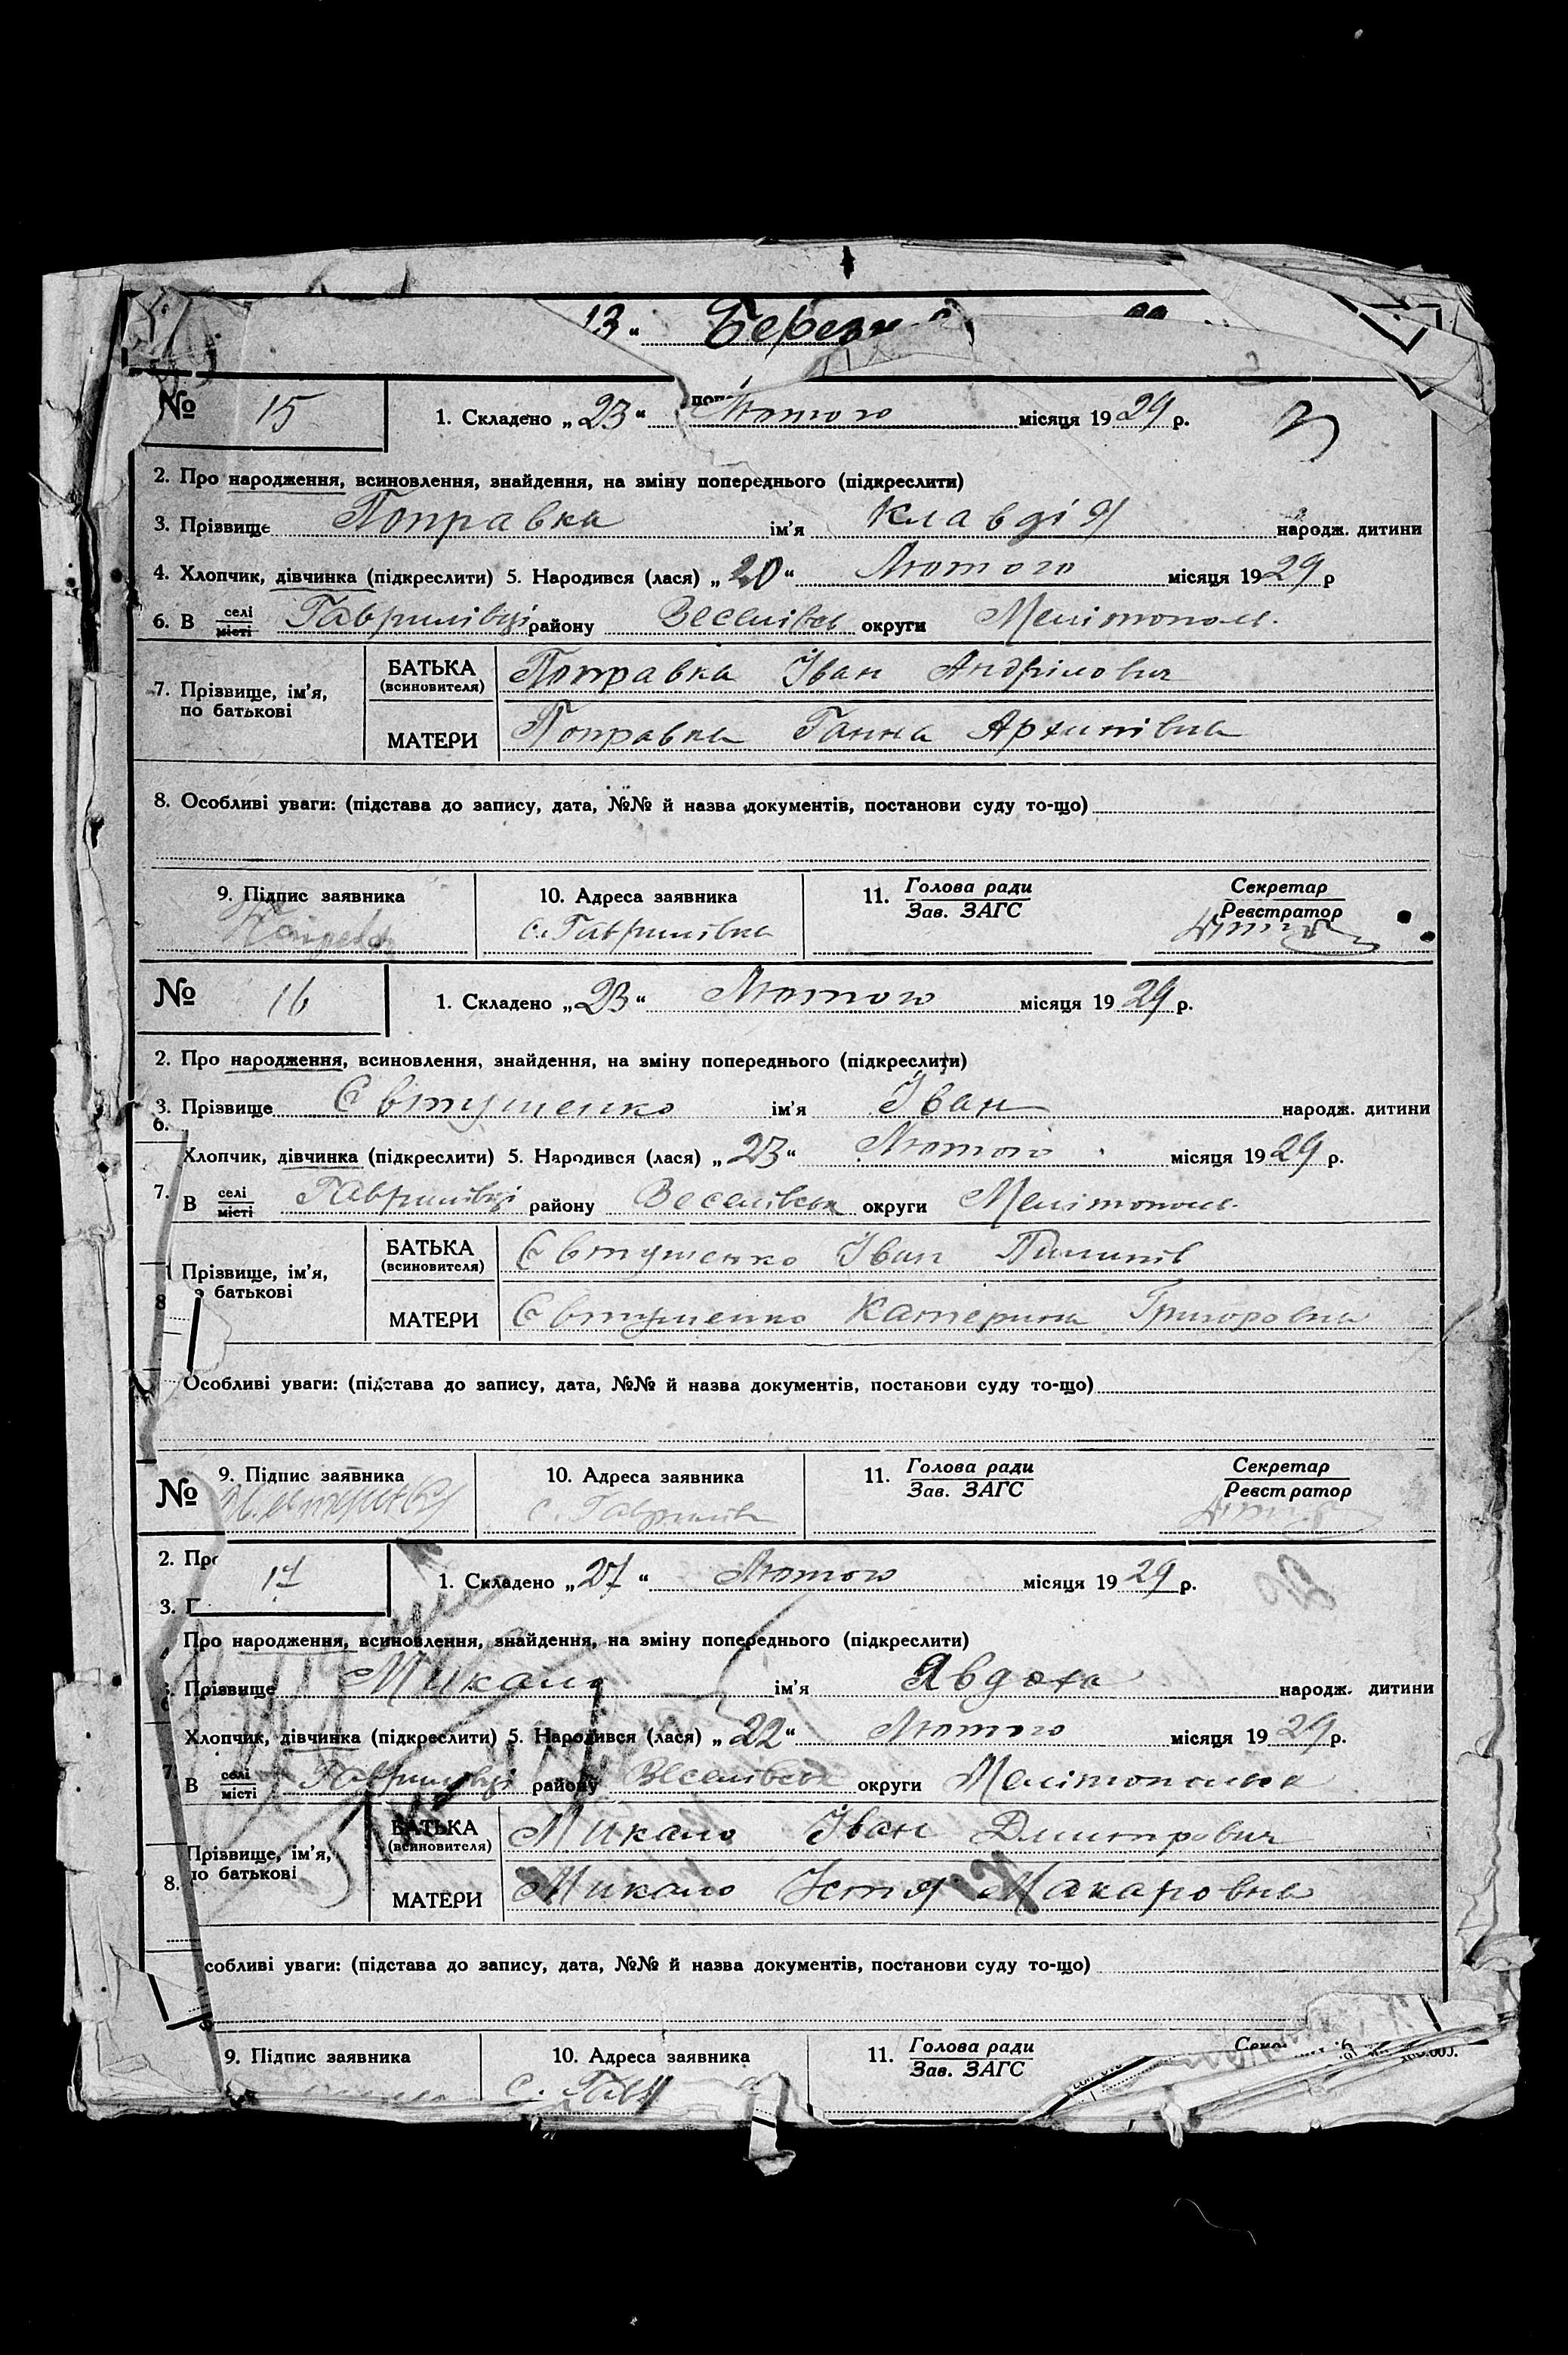 13 "
№ 15 1. Складено „ 23 " Лютого місяця 19 29 р.
2. Про народження, всиновлення, знайдення, на зміну попереднього (підкреслити)
3. Прізвище Поправка ім'я Клавдія народж. дитини
4. Хлопчик, дівчинка (підкреслити) 5. Народився (лася) „ 20 " Лютого місяця 19 29 р
6. В селі місті Гаврилівці району Веселівськ округи Мелітополь.
7. Прізвище, ім'я, по батькові
БАТЬКА (всиновителя) Поправка Іван Андрійович
МАТЕРИ Поправка Ганна Архипівна
8. Особливі уваги: (підстава до запису, дата, №№ й назва документів, постанови суду то-що)
9. Підпис заявника 10. Адреса заявника 11. Голова ради Зав. ЗАГС Секретар Реєстратор
с. Гаврилівка
№ 16 1. Складено „ 23 " Лютого місяця 19 29 р.
2. Про народження, всиновлення, знайдення, на зміну попереднього (підкреслити)
3. Прізвище Євтушенко ім'я Іван народж. дитини
6.
Хлопчик, дівчинка (підкреслити) 5. Народився (лася) „ 23 " Лютого місяця 19 29 р.
7. В селі місті Гаврилівці району Веселівськ округи Мелітополь.
Прізвище, ім'я, батькові
БАТЬКА (всиновителя) Євтушенко Іван Пилипів
8
МАТЕРИ Євтушенко Катерина Григоровна
Особливі уваги: (підстава до запису, дата, №№ й назва документів, постанови суду то-що)
9. Підпис заявника 10. Адреса заявника 11. Голова ради Зав. ЗАГС Секретар Реєстратор
№ с.
2. 17 1. Складено „ 27 " Лютого місяця 19 29 р.
3.
Про народження, всиновлення, знайдення, на зміну попереднього (підкреслити)
Прізвище Микало ім'я Явдоха народж. дитини
Хлопчик, дівчинка (підкреслити) 5. Народився (лася) „ 22 " Лютого місяця 19 29 р.
7. В селі місті Гаврилівці району Веселівськ округи
Прізвище, ім'я, по батькові
БАТЬКА (всиновителя) Микало Іван Дмитрович
8.
МАТЕРИ Микало Устя Макаровна
собливі уваги: (підстава до запису, дата, №№ й назва документів, постанови суду то-що)
9. Підпис заявника 10. Адреса заявника 11. Голова ради Зав. ЗАГС
с.